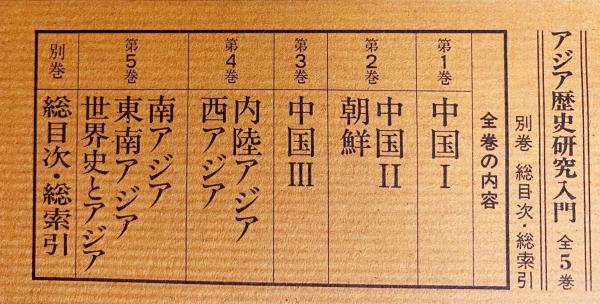 アジア歴史研究入門 全5巻
別巻 総目次・総索引
全巻の内容
第1巻
中国I
第2巻
中国II
朝鮮
第3巻
中国III
第4巻
内陸アジア
西アジア
第5巻
南アジア
東南アジア
世界史とアジア
別巻
総目次・総索引